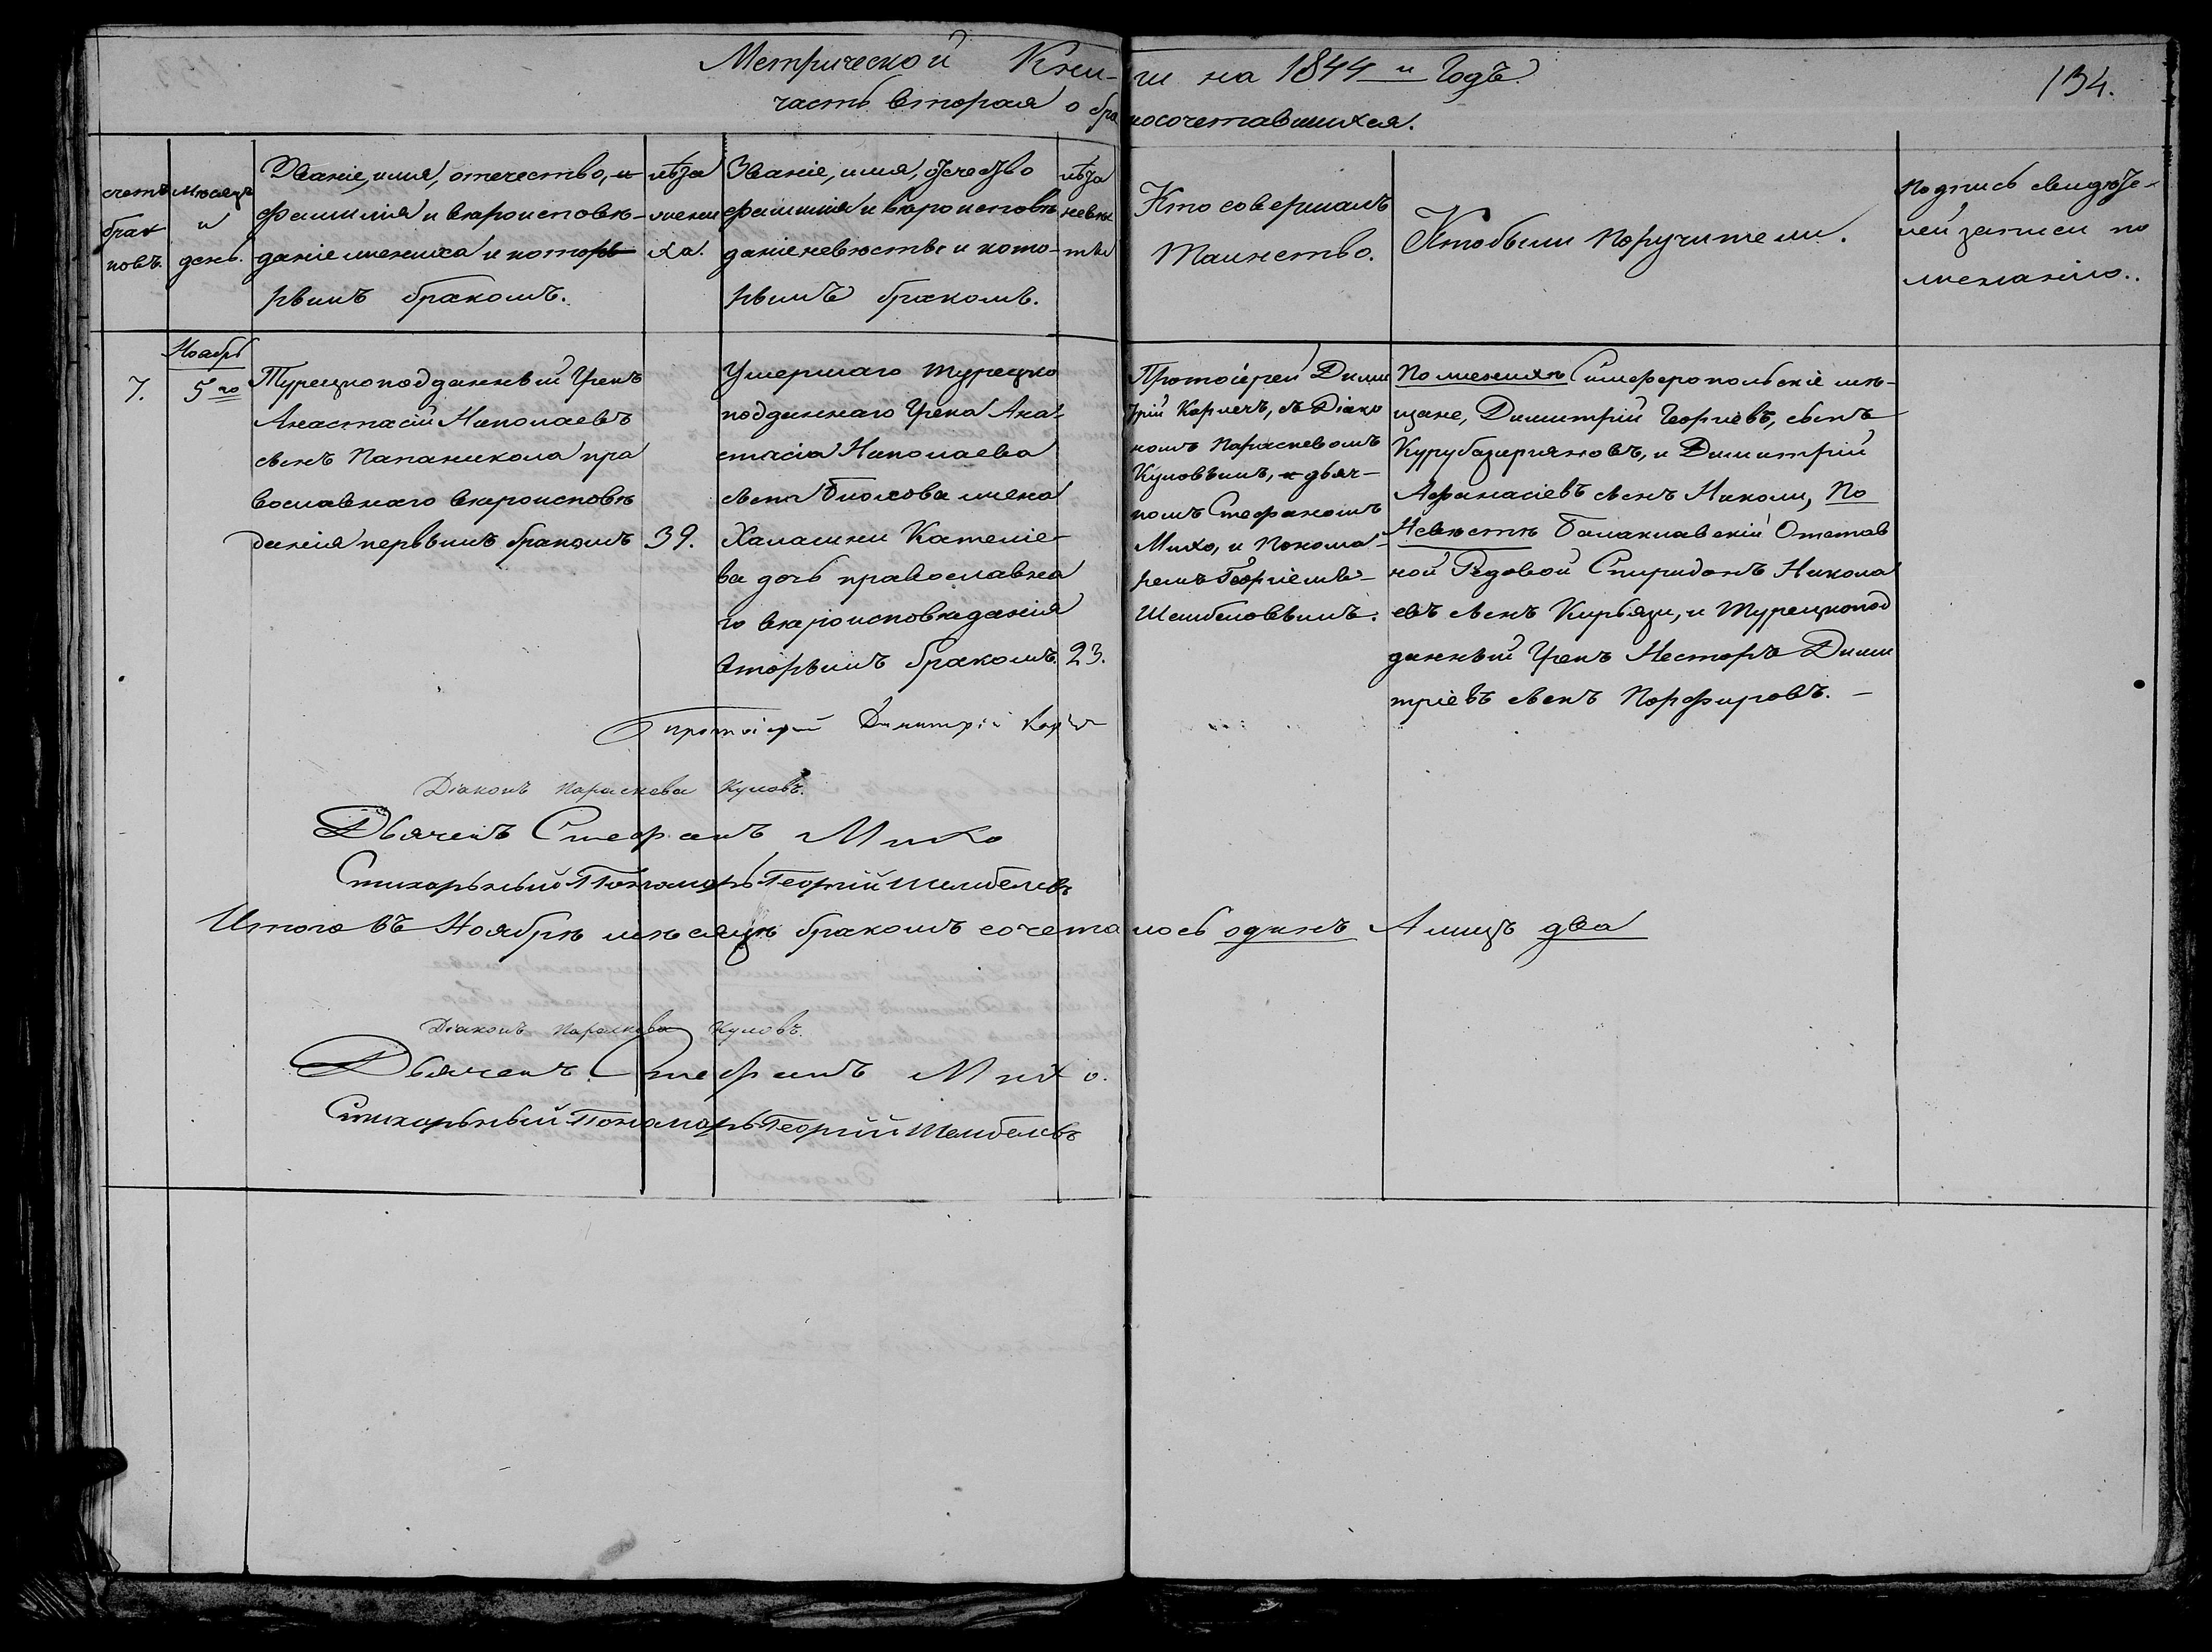 Метрической Кни-ги на 1844 й Годъ.
134.
часть вторая о бракосочетавшихся.
счетъ браковъ.
Мѣсяцъ и день.
Званіе, имя, отечество, и
фамилія и вѣроисповѣ-
даніе жениха и которы
рымъ бракомъ.
лѣта
жени
ха.
Званіе, имя, отечество
фамилія и вѣроисповѣ
даніе невѣсты и кото-
рымъ бракомъ.
лѣта
невѣс
ты
Кто совершалъ
Таинство.
Кто были поручители.
Подпись свидѣте-
лей записи по
желанію.
Ноябрь
7.
5го
Турецкоподданный Грекъ
Анастасій Николаевъ
сынъ Папаникола пра
вославнаго вѣроисповѣ
данія первымъ бракомъ
39.
Умершаго турецко
подданнаго Грека Ана
стасія Николаева
сына жена
Кателіе-
ва дочь православна
го вѣроисповѣданія
вторымъ бракомъ.
23.
Протоіерей Дими
трій съ Діако
номъ Параскевомъ
Кумовымъ, дьяч-
комъ Стефаномъ
Михо, и Понома-
ремъ Георгіемъ-
Шембеловымъ.
По женихѣ Симферопольскіе мѣ-
щане, Димитрій Георгіевъ, сынъ
и Димитрій
Афанасіевъ сынъ Николи, По
Невѣстѣ Балаклавскій Отстав
ной Рядовой Спиридонъ Никола
евъ сынъ Кирьязи, и Турецкопод
данный Грекъ Несторъ Дими
тріевъ сынъ Порфировъ. –
Протоіерей Димитрій
Діаконъ Параскева Кумовъ.
Дьячекъ Стефанъ Михо
Стихарьный Пономарь Георгій Шембелевъ
Итого въ Ноябрѣ мѣсяцѣ бракомъ сочеталось одинъ А лицъ два
Діаконъ Параскева Кумовъ.
Дьячекъ Стефанъ Михо.
Стихарьный Пономарь Георгій Шембелевъ